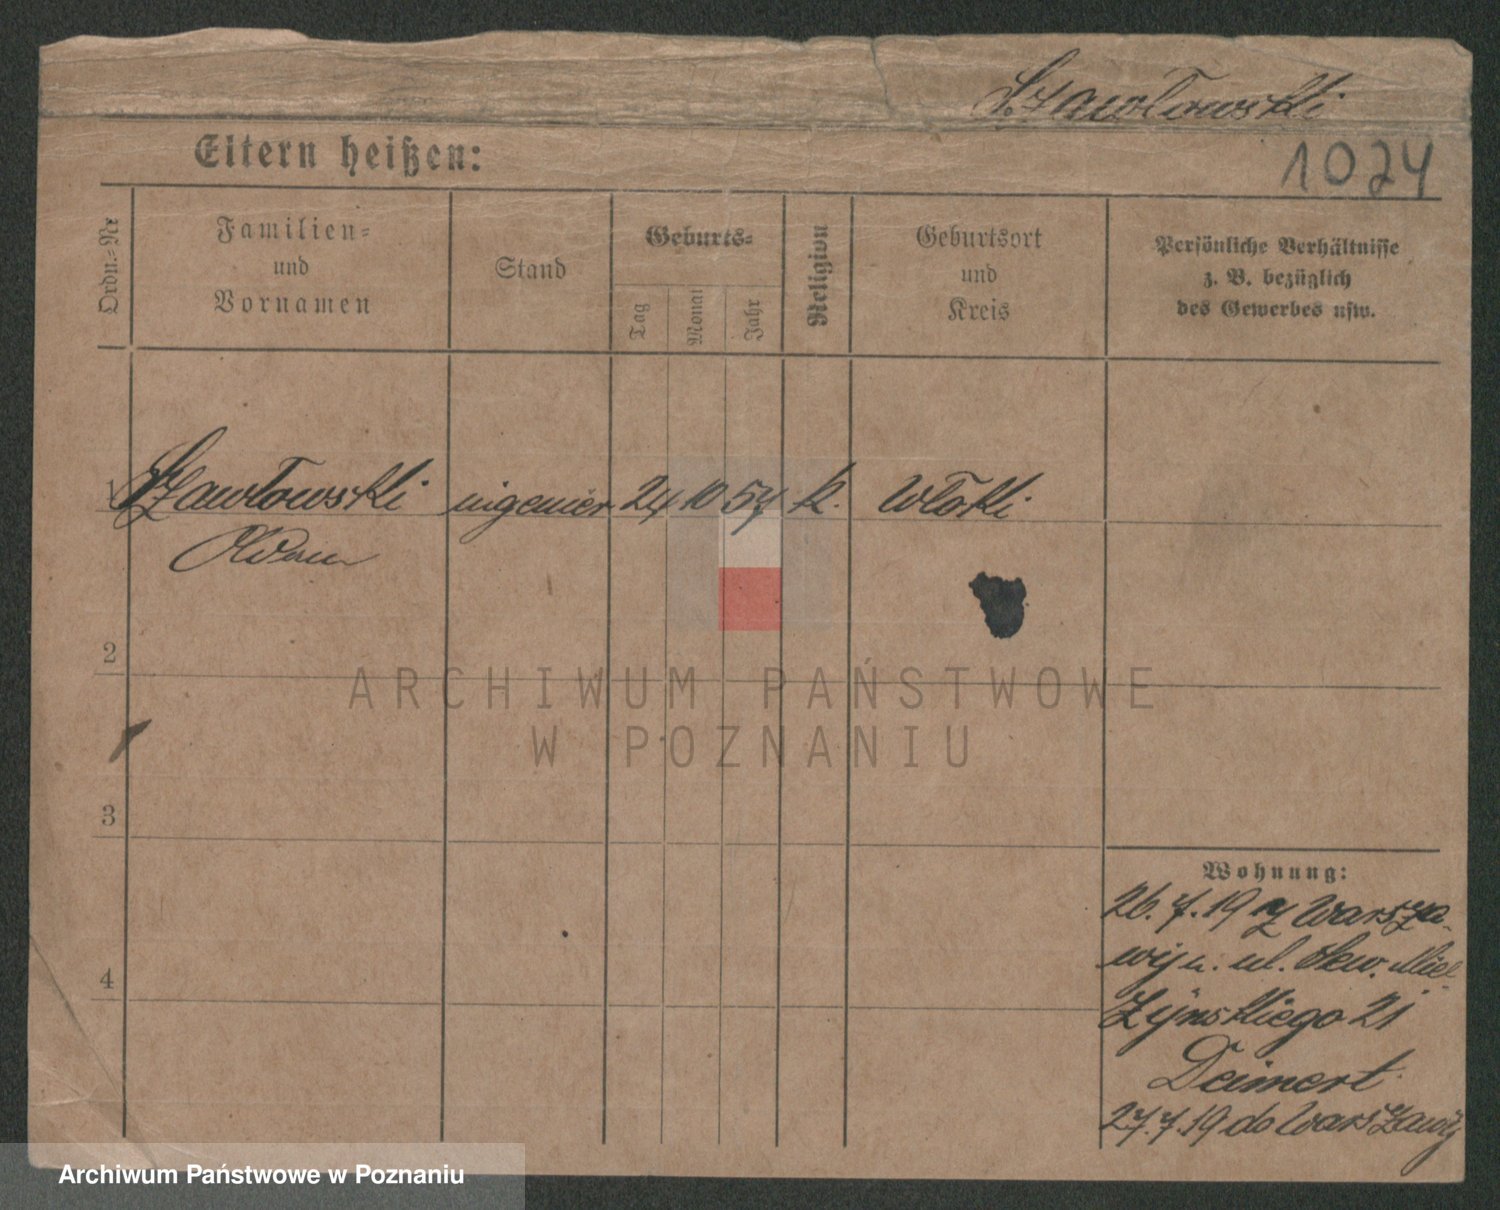 Szawłowski
1024
Eltern heißen:
Ordn.-Nr
Familien-
und
Vornamen
Stand
Geburts-
Tag
Monat
Jahr
Religion
Geburtsort
und
Kreis
Persönliche Verhältnisse
z. B. bezüglich
des Gewerbes usw.
1 Szawłowski ingenier 24 10 57 k. Włoki
Adam
2
ARCHIWUM PAŃSTWOWE
W POZNANIU
3
Wohnung:
26.7.19 z Warsza-
wy u. ul. Skw. Miel-
żyńskiego 21
4
Deimert
27.7.19 do Warszawy
Archiwum Państwowe w Poznaniu